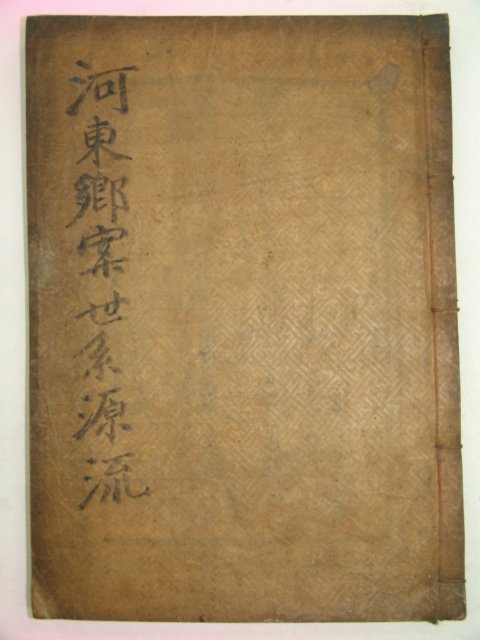 河東鄉案世系源流